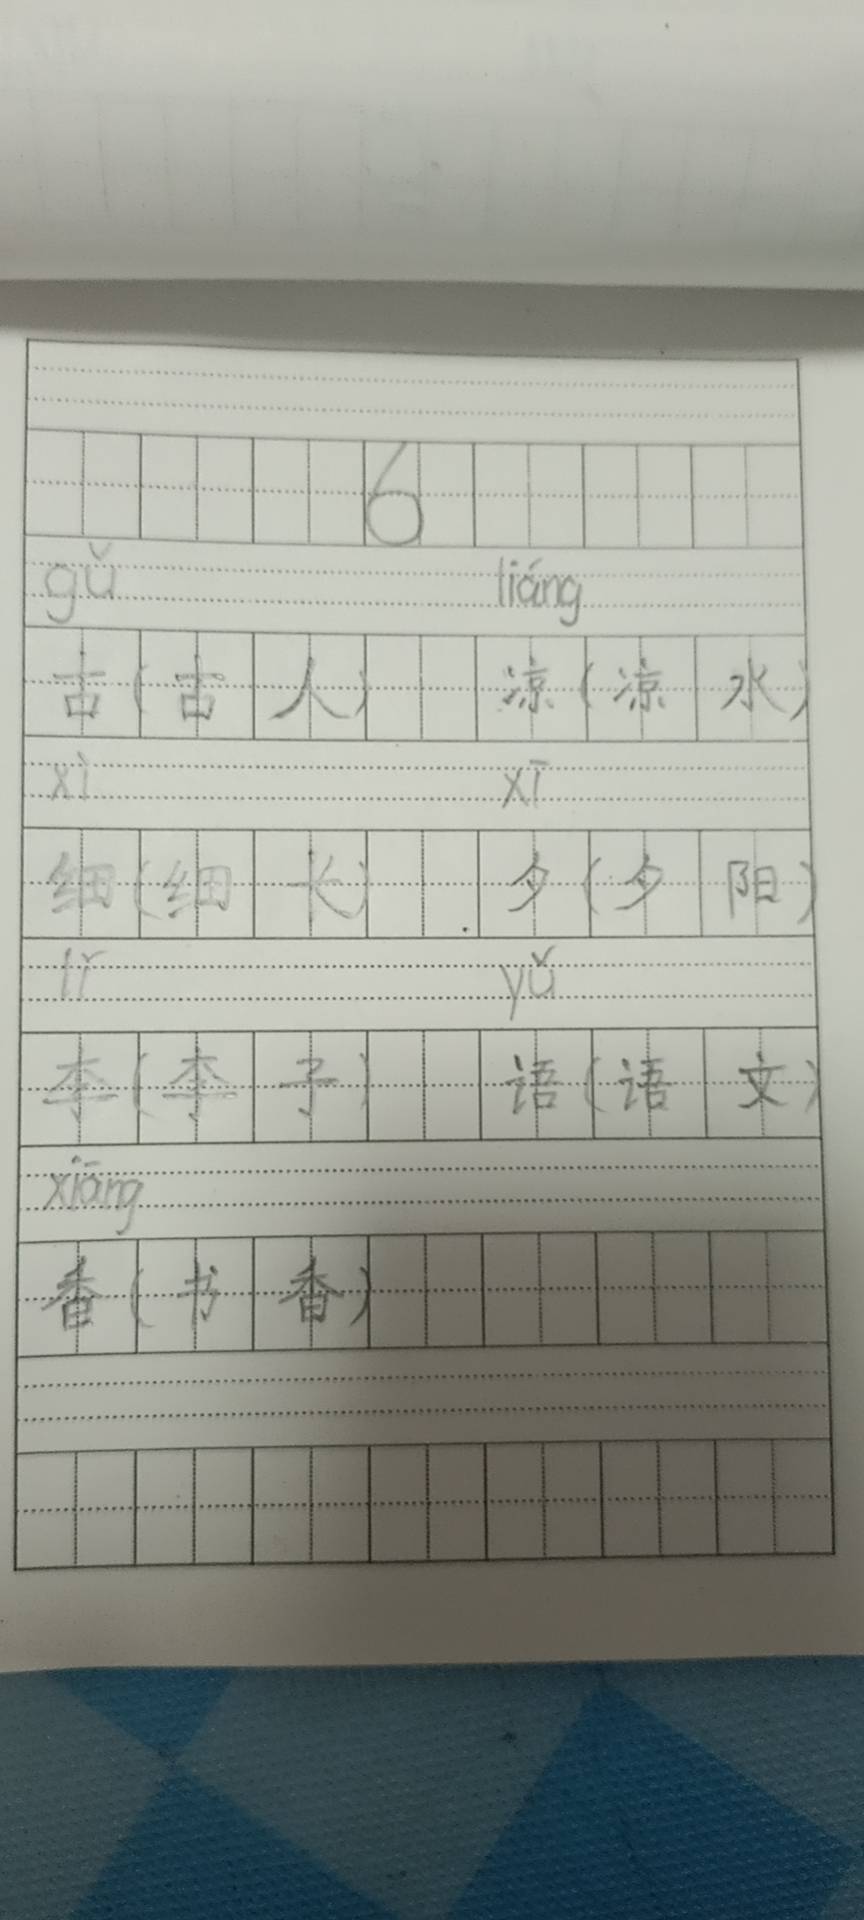 6
gǔ liáng
古(古人) 凉(凉水)
xì xī
细(细长) 夕(夕阳)
lǐ yǔ
李(李子) 语(语文)
xiāng
香(书香)